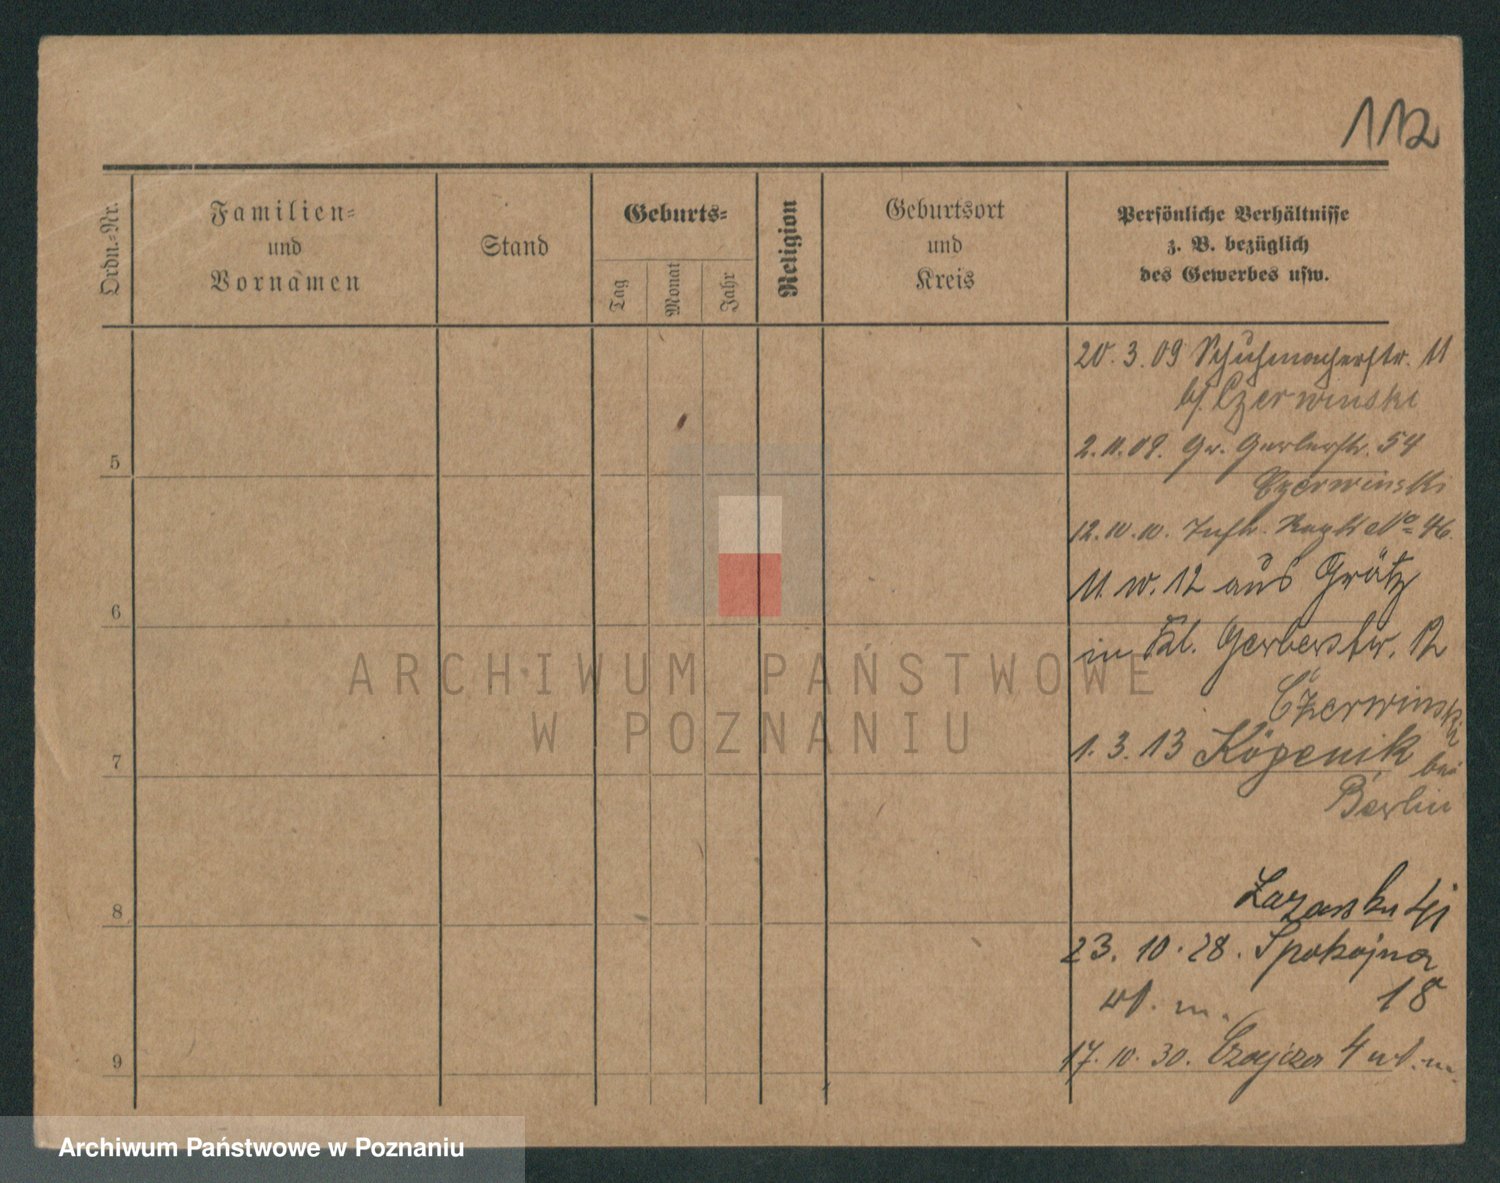 112
Ordn.-Nr.
Familien-
und
Vornamen
Stand
Geburts-
Tag
Monat
Jahr
Religion
Geburtsort
und
Kreis
Persönliche Verhältnisse
z. B. bezüglich
des Gewerbes usw.
20. 3. 09 Schuhmacherstr. 11
b/. Czerwinski
2. 11. 09. Gr. Gerberstr. 54
5
Czerwinski
12. 10. 10. Inft. Regt No 46.
11. 12 aus Grätz
6
in Kl. Gerberstr. 12
Czerwinski
1. 3. 13 Köpenik bei
7
Berlin
8
23. 10. 28. Spokojna
wł. m. 18
17. 10. 30. Czajcza 4 wł. m.
9
ARCHIWUM PAŃSTWOWE
W POZNANIU
Archiwum Państwowe w Poznaniu